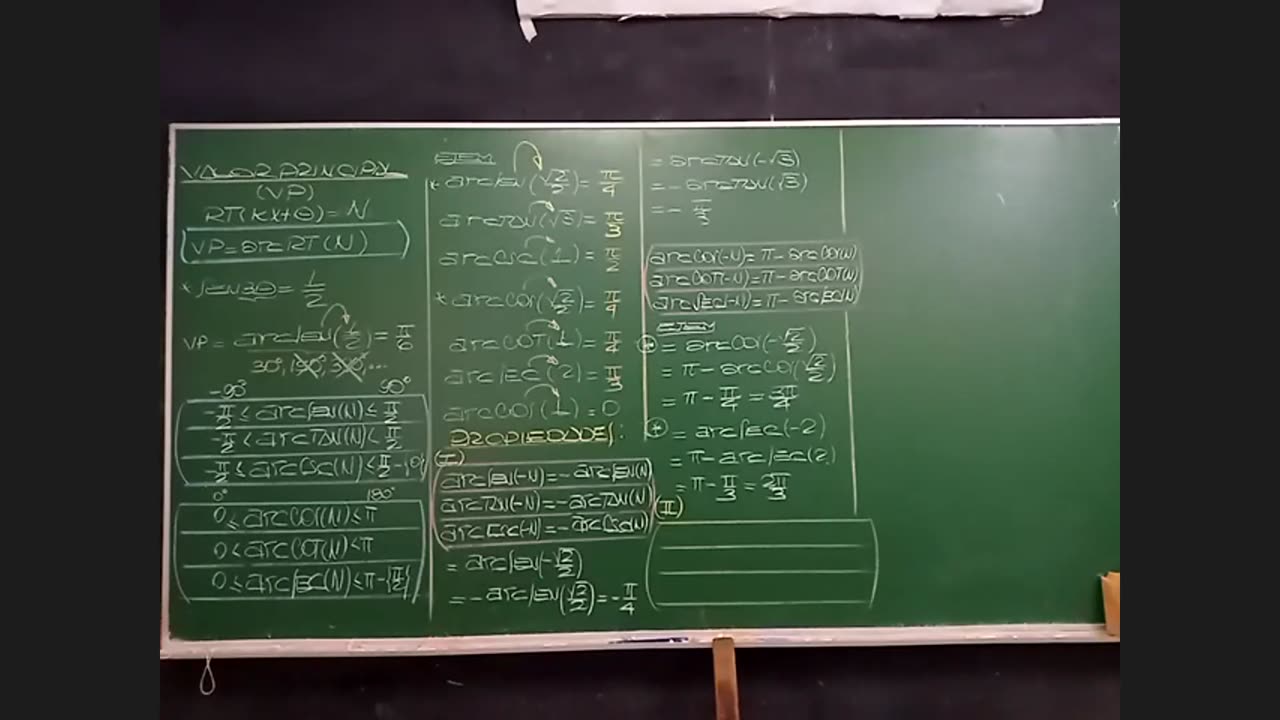 VALOR PRINCIPAL
(VP)
RT(KX+θ)=N
VP=arcRT(N)
*SEN3θ=1/2
VP=arcSEN(1/2)=π/6
30°, 150°, 390°, ...
-90° 90°
-π/2≤arcSEN(N)≤π/2
-π/2<arcTAN(N)<π/2
-π/2≤arcCSC(N)≤π/2-{0}
0° 180°
0≤arcCOS(N)≤π
0<arcCOT(N)<π
0≤arcSEC(N)≤π-{π/2}
EJEM
*arcSEN(√2/2)=π/4
arcTAN(√3)=π/3
arcCSC(1)=π/2
*arcCOS(√2/2)=π/4
arcCOT(1)=π/4
arcSEC(2)=π/3
arcCOS(1)=0
PROPIEDADES:
(I)
arcSEN(-N)=-arcSEN(N)
arcTAN(-N)=-arcTAN(N)
arcCSC(-N)=-arcCSC(N)
=arcSEN(-√2/2)
=-arcSEN(√2/2)=-π/4
=arcTAN(-√3)
=-arcTAN(√3)
=-π/3
arcCOS(-N)=π-arcCOS(N)
arcCOT(-N)=π-arcCOT(N)
arcSEC(-N)=π-arcSEC(N)
EJEM
*=arcCOS(-√2/2)
=π-arcCOS(√2/2)
=π-π/4=3π/4
*=arcSEC(-2)
=π-arcSEC(2)
=π-π/3=2π/3
(II)